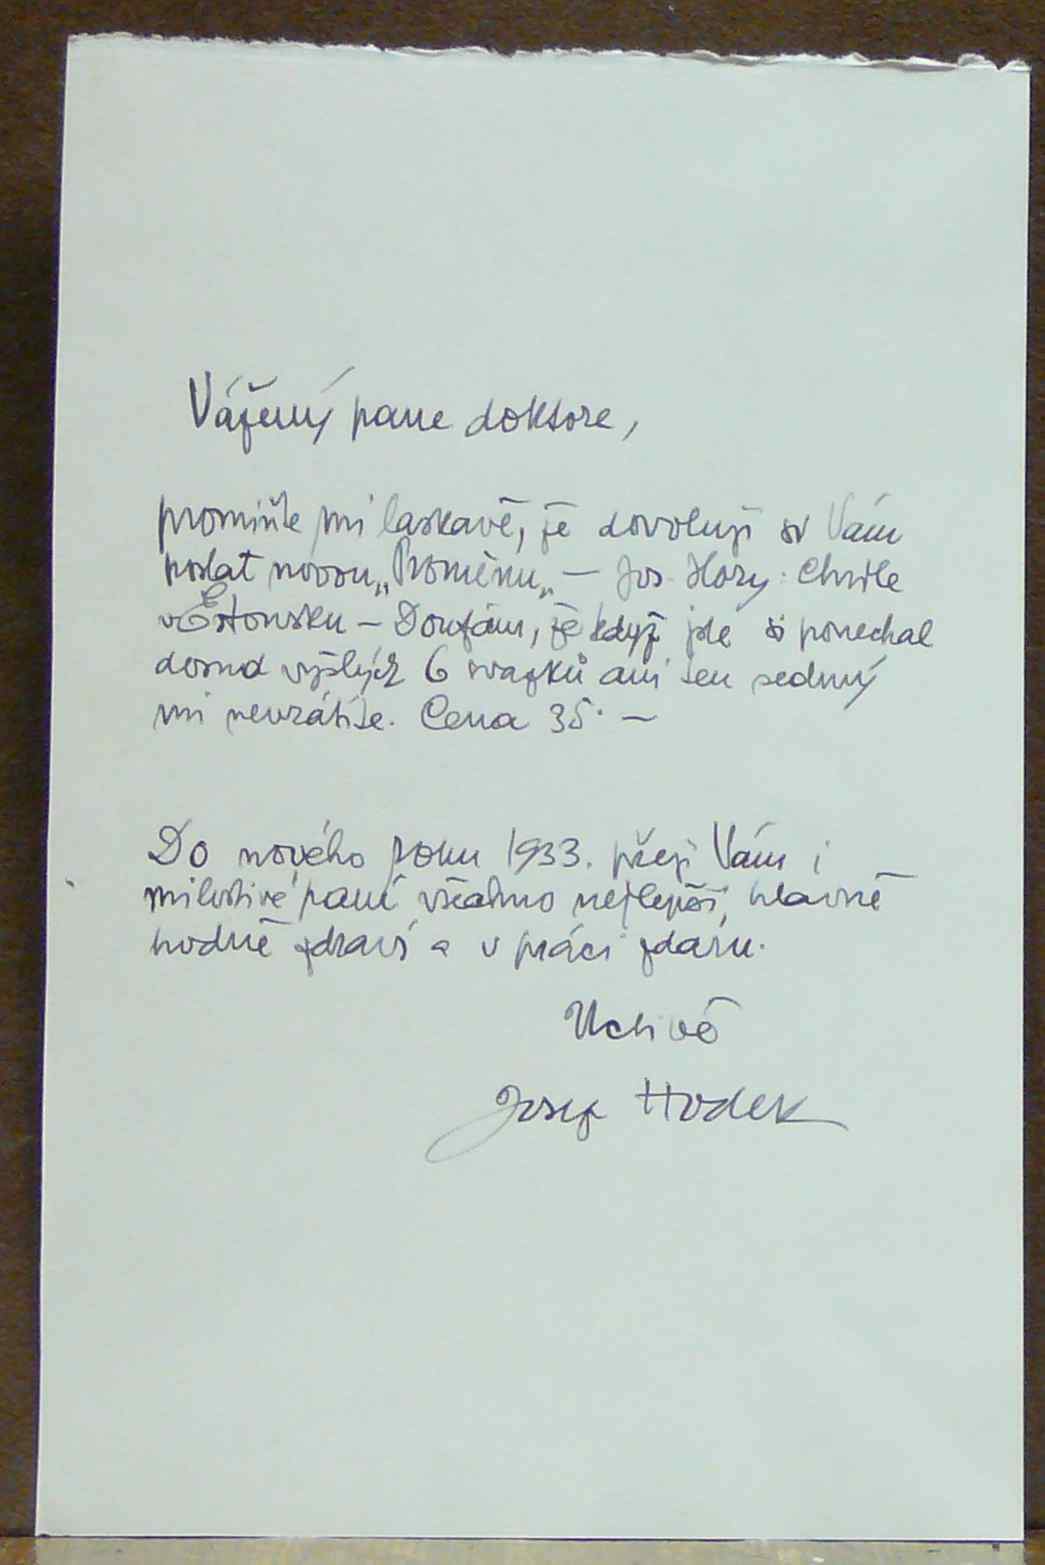 Vážený pane doktore,
promiňte mi laskavě, že dovoluji si Vám
poslat novou „Proměnu„ — Jos. Hory: Chvíle
v Estonsku — Doufám, že když jste si ponechal
dosud vyšlých 6 svazků ani ten sedmý
mi nevrátíte. Cena 35·—
Do nového roku 1933. přeji Vám i
milostivé paní všechno nejlepší, hlavně
hodně zdraví a v práci zdaru.
Uctivě
Josef Hodek